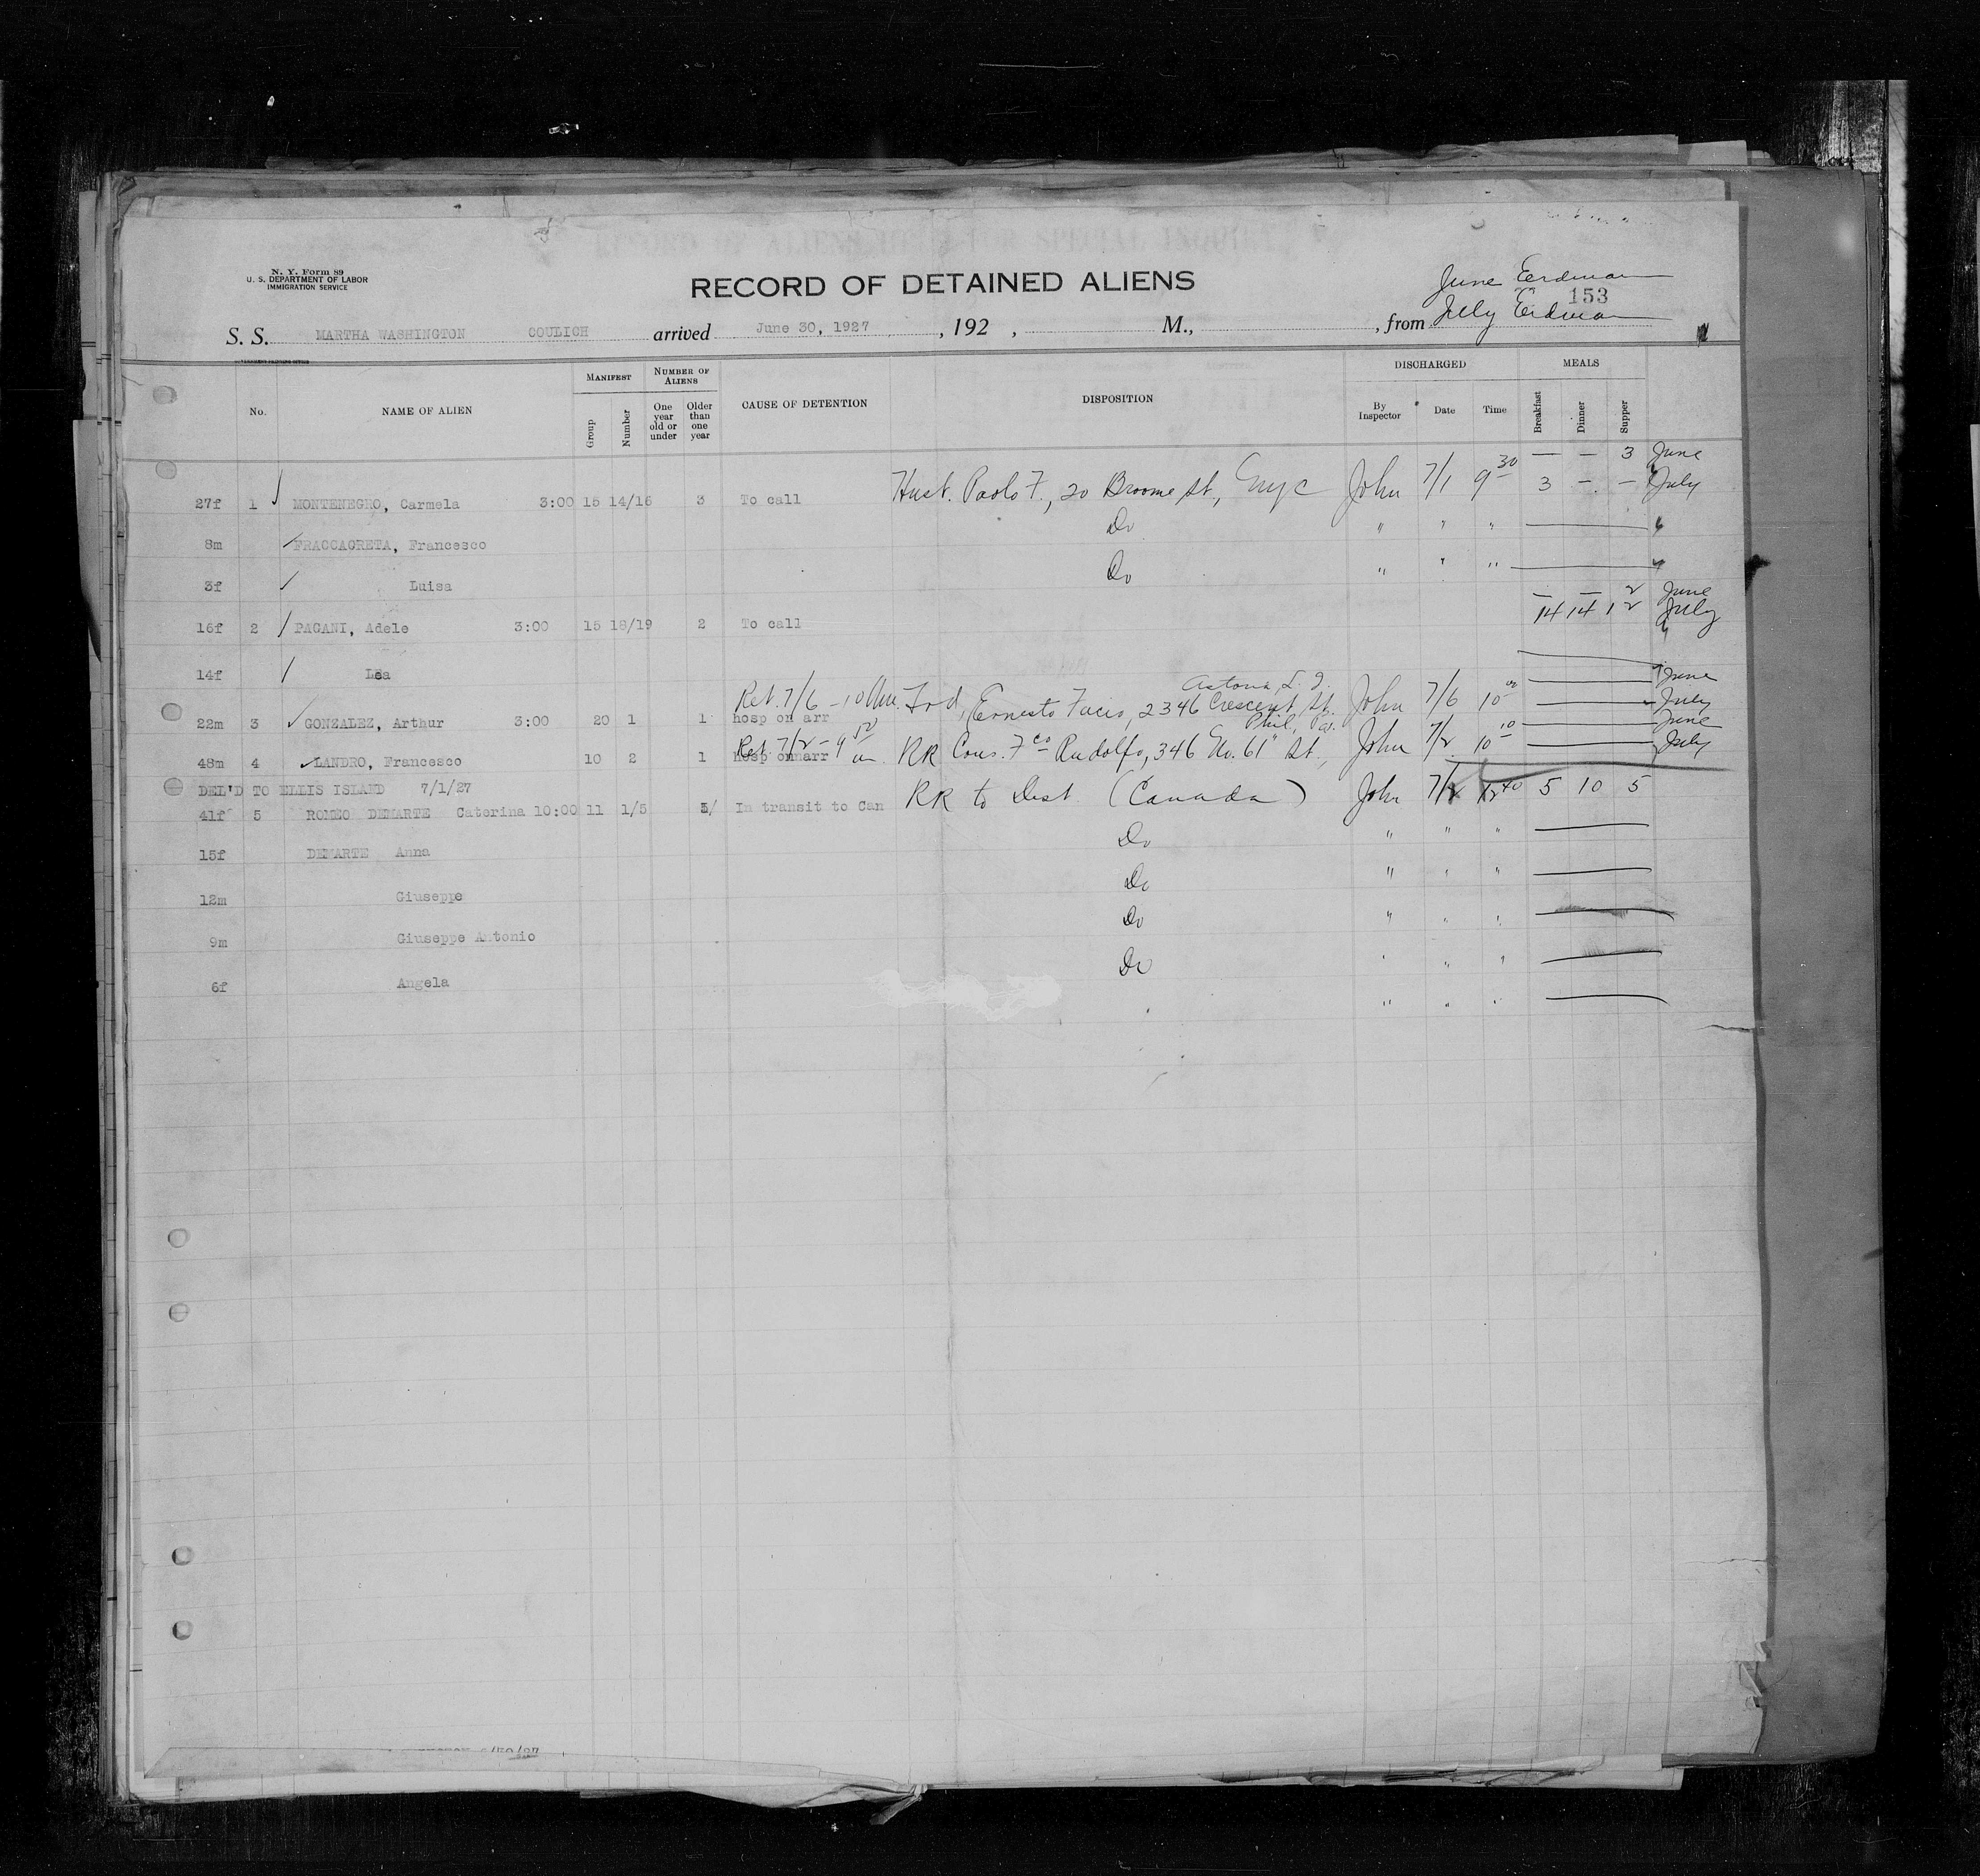 N. Y. Form 89
U. S. DEPARTMENT OF LABOR
IMMIGRATION SERVICE
RECORD OF DETAINED ALIENS
June Erdman
153
July Erdman
S. S. MARTHA WASHINGTON COULICH arrived June 30, 1927, 192 , M., , from
No. NAME OF ALIEN MANIFEST Group Number NUMBER OF ALIENS One year old or under Older than one year CAUSE OF DETENTION DISPOSITION DISCHARGED By Inspector Date Time MEALS Breakfast Dinner Supper
— — 3 June
27f 1 MONTENEGRO, Carmela 3:00 15 14/16 3 To call Husb. Paolo F., 20 Broome St., NYC John 7/1 9 30 3 — — July
8m FRACCACRETA, Francesco Do " " "
3f Luisa Do " " "
— — 2 June
16f 2 PAGANI, Adele 3:00 15 18/19 2 To call 14 14 12 July
14f Lea
Astoria, L. I. June
22m 3 GONZALEZ, Arthur 3:00 20 1 1 hosp on arr Ret. 7/6 - 10 Am. Frd, Ernesto Facio, 2346 Crescent St. John 7/6 10 00 July
Phil, Pa. June
48m 4 LANDRO, Francesco 10 2 1 hosp onarr Ret 7/2 - 9 50 am RR Cous. Fco Rudolfo, 346 No. 61" St., John 7/2 10 10 July
DEL'D TO ELLIS ISLAND 7/1/27
41f 5 ROMEO DEMARTE Caterina 10:00 11 1/5 5/ In transit to Can RR to Dest (Canada) John 7/2 12 40 5 10 5
15f DEMARTE Anna Do " " "
12m Giuseppe Do " " "
9m Giuseppe Antonio Do " " "
6f Angela Do " " "